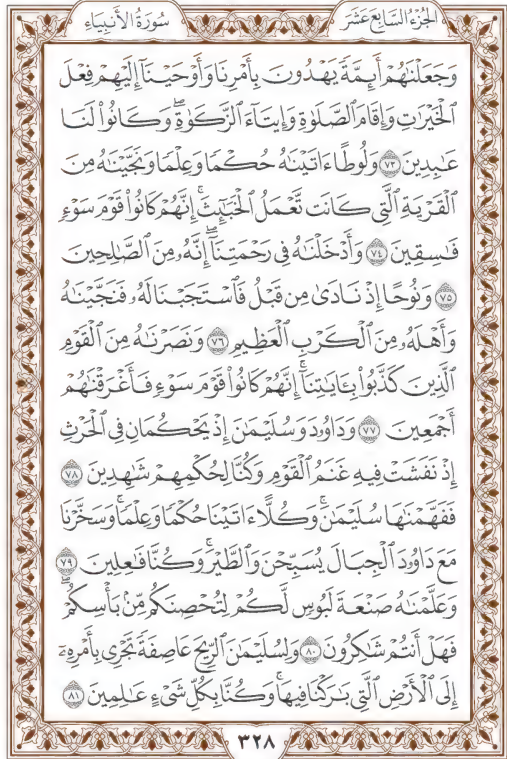 الجُزْءُ السَّابِعَ عَشَرَ
سُورَةُ الأَنبِيَاءِ
وَجَعَلْنَٰهُمْ أَئِمَّةً يَهْدُونَ بِأَمْرِنَا وَأَوْحَيْنَآ إِلَيْهِمْ فِعْلَ
ٱلْخَيْرَٰتِ وَإِقَامَ ٱلصَّلَوٰةِ وَإِيتَآءَ ٱلزَّكَوٰةِ ۖ وَكَانُوا۟ لَنَا
عَٰبِدِينَ ﴿٧٣﴾ وَلُوطًا ءَاتَيْنَٰهُ حُكْمًا وَعِلْمًا وَنَجَّيْنَٰهُ مِنَ
ٱلْقَرْيَةِ ٱلَّتِى كَانَت تَّعْمَلُ ٱلْخَبَٰٓئِثَ ۗ إِنَّهُمْ كَانُوا۟ قَوْمَ سَوْءٍ
فَٰسِقِينَ ﴿٧٤﴾ وَأَدْخَلْنَٰهُ فِى رَحْمَتِنَآ ۖ إِنَّهُۥ مِنَ ٱلصَّٰلِحِينَ
﴿٧٥﴾ وَنُوحًا إِذْ نَادَىٰ مِن قَبْلُ فَٱسْتَجَبْنَا لَهُۥ فَنَجَّيْنَٰهُ
وَأَهْلَهُۥ مِنَ ٱلْكَرْبِ ٱلْعَظِيمِ ﴿٧٦﴾ وَنَصَرْنَٰهُ مِنَ ٱلْقَوْمِ
ٱلَّذِينَ كَذَّبُوا۟ بِـَٔايَٰتِنَآ ۚ إِنَّهُمْ كَانُوا۟ قَوْمَ سَوْءٍ فَأَغْرَقْنَٰهُمْ
أَجْمَعِينَ ﴿٧٧﴾ وَدَاوُۥدَ وَسُلَيْمَٰنَ إِذْ يَحْكُمَانِ فِى ٱلْحَرْثِ
إِذْ نَفَشَتْ فِيهِ غَنَمُ ٱلْقَوْمِ وَكُنَّا لِحُكْمِهِمْ شَٰهِدِينَ ﴿٧٨﴾
فَفَهَّمْنَٰهَا سُلَيْمَٰنَ ۚ وَكُلًّا ءَاتَيْنَا حُكْمًا وَعِلْمًا ۚ وَسَخَّرْنَا
مَعَ دَاوُۥدَ ٱلْجِبَالَ يُسَبِّحْنَ وَٱلطَّيْرَ ۚ وَكُنَّا فَٰعِلِينَ ﴿٧٩﴾
وَعَلَّمْنَٰهُ صَنْعَةَ لَبُوسٍ لَّكُمْ لِتُحْصِنَكُم مِّنۢ بَأْسِكُمْ ۖ
فَهَلْ أَنتُمْ شَٰكِرُونَ ﴿٨٠﴾ وَلِسُلَيْمَٰنَ ٱلرِّيحَ عَاصِفَةً تَجْرِى بِأَمْرِهِۦٓ
إِلَى ٱلْأَرْضِ ٱلَّتِى بَٰرَكْنَا فِيهَا ۚ وَكُنَّا بِكُلِّ شَىْءٍ عَٰلِمِينَ ﴿٨١﴾
٣٢٨